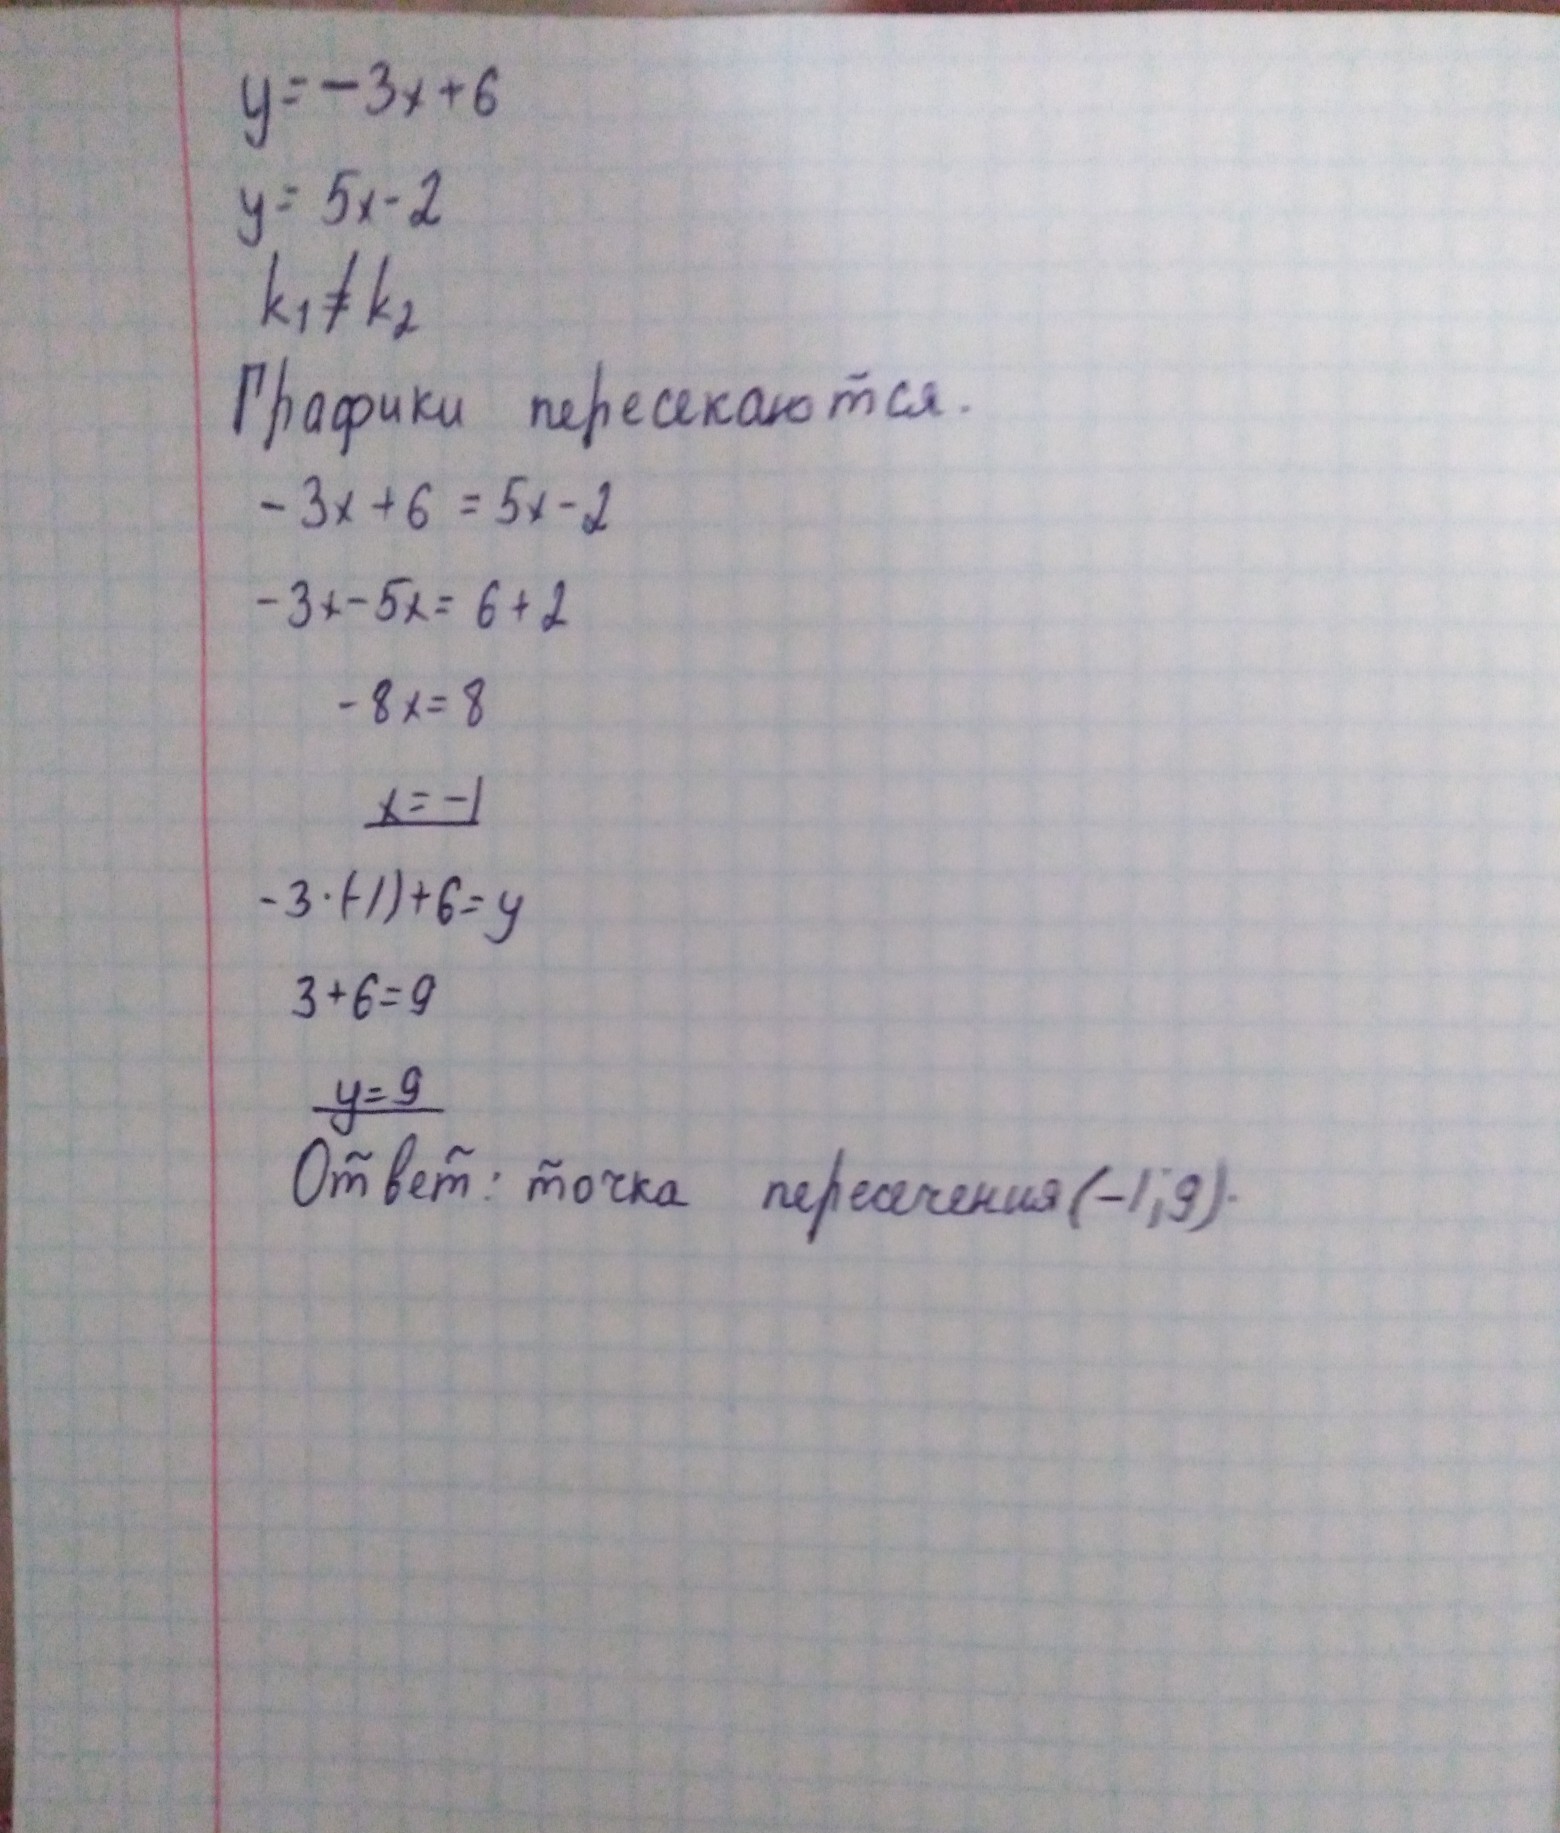 y=-3x+6
y=5x-2
k₁≠k₂
Графики пересекаются.
-3x+6=5x-2
-3x-5x=6+2
-8x=8
x=-1
-3·(-1)+6=y
3+6=9
y=9
Ответ: точка пересечения (-1;9).